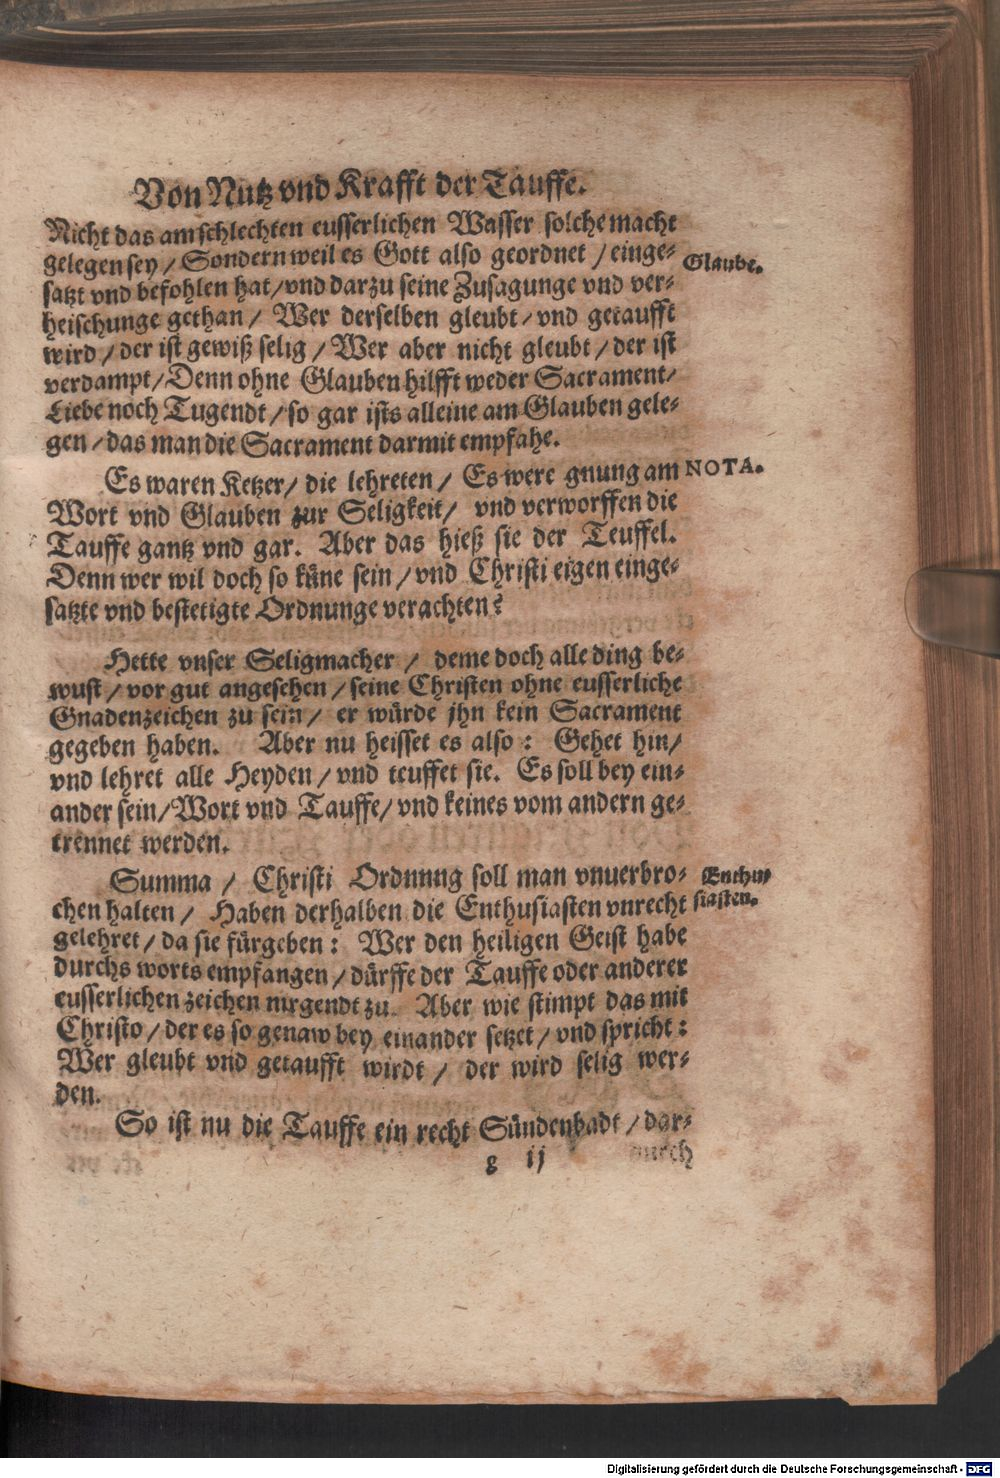 Von Nutz vnd Krafft der Tauffe.
Nicht das am schlechten eusserlichen Wasser solche macht
gelegen sey / Sondern weil es Gott also geordnet / einge-
Glaube.
satzt vnd befohlen hat / vnd darzu seine Zusagunge vnd ver-
heischunge gethan / Wer derselben gleubt / vnd getaufft
wird / der ist gewiß selig / Wer aber nicht gleubt / der ist
verdampt / Denn ohne Glauben hilfft weder Sacrament /
Liebe noch Tugendt / so gar ists alleine am Glauben gele-
gen / das man die Sacrament darmit empfahe.
Es waren Ketzer / die lehreten / Es were gnung am
NOTA.
Wort vnd Glauben zur Seligkeit / vnd verworffen die
Tauffe gantz vnd gar. Aber das hieß sie der Teuffel.
Denn wer wil doch so küne sein / vnd Christi eigen einge-
satzte vnd bestetigte Ordnunge verachten?
Hette vnser Seligmacher / deme doch alle ding be-
wust / vor gut angesehen / seine Christen ohne eusserliche
Gnadenzeichen zu sein / er würde jhn kein Sacrament
gegeben haben. Aber nu heisset es also: Gehet hin /
vnd lehret alle Heyden / vnd teuffet sie. Es soll bey ein-
ander sein / Wort vnd Tauffe / vnd keines vom andern ge-
trennet werden.
Summa / Christi Ordnung soll man vnuerbro-
Enthu-
chen halten / Haben derhalben die Enthusiasten vnrecht
siasten.
gelehret / da sie fürgeben: Wer den heiligen Geist habe
durchs worts empfangen / dürffe der Tauffe oder anderer
eusserlichen zeichen nirgendt zu. Aber wie stimpt das mit
Christo / der es so genaw bey einander setzet / vnd spricht:
Wer gleubt vnd getaufft wirdt / der wird selig wer-
den.
So ist nu die Tauffe ein recht Sündenbadt / dar-
g ij durch
Digitalisierung gefördert durch die Deutsche Forschungsgemeinschaft - DFG